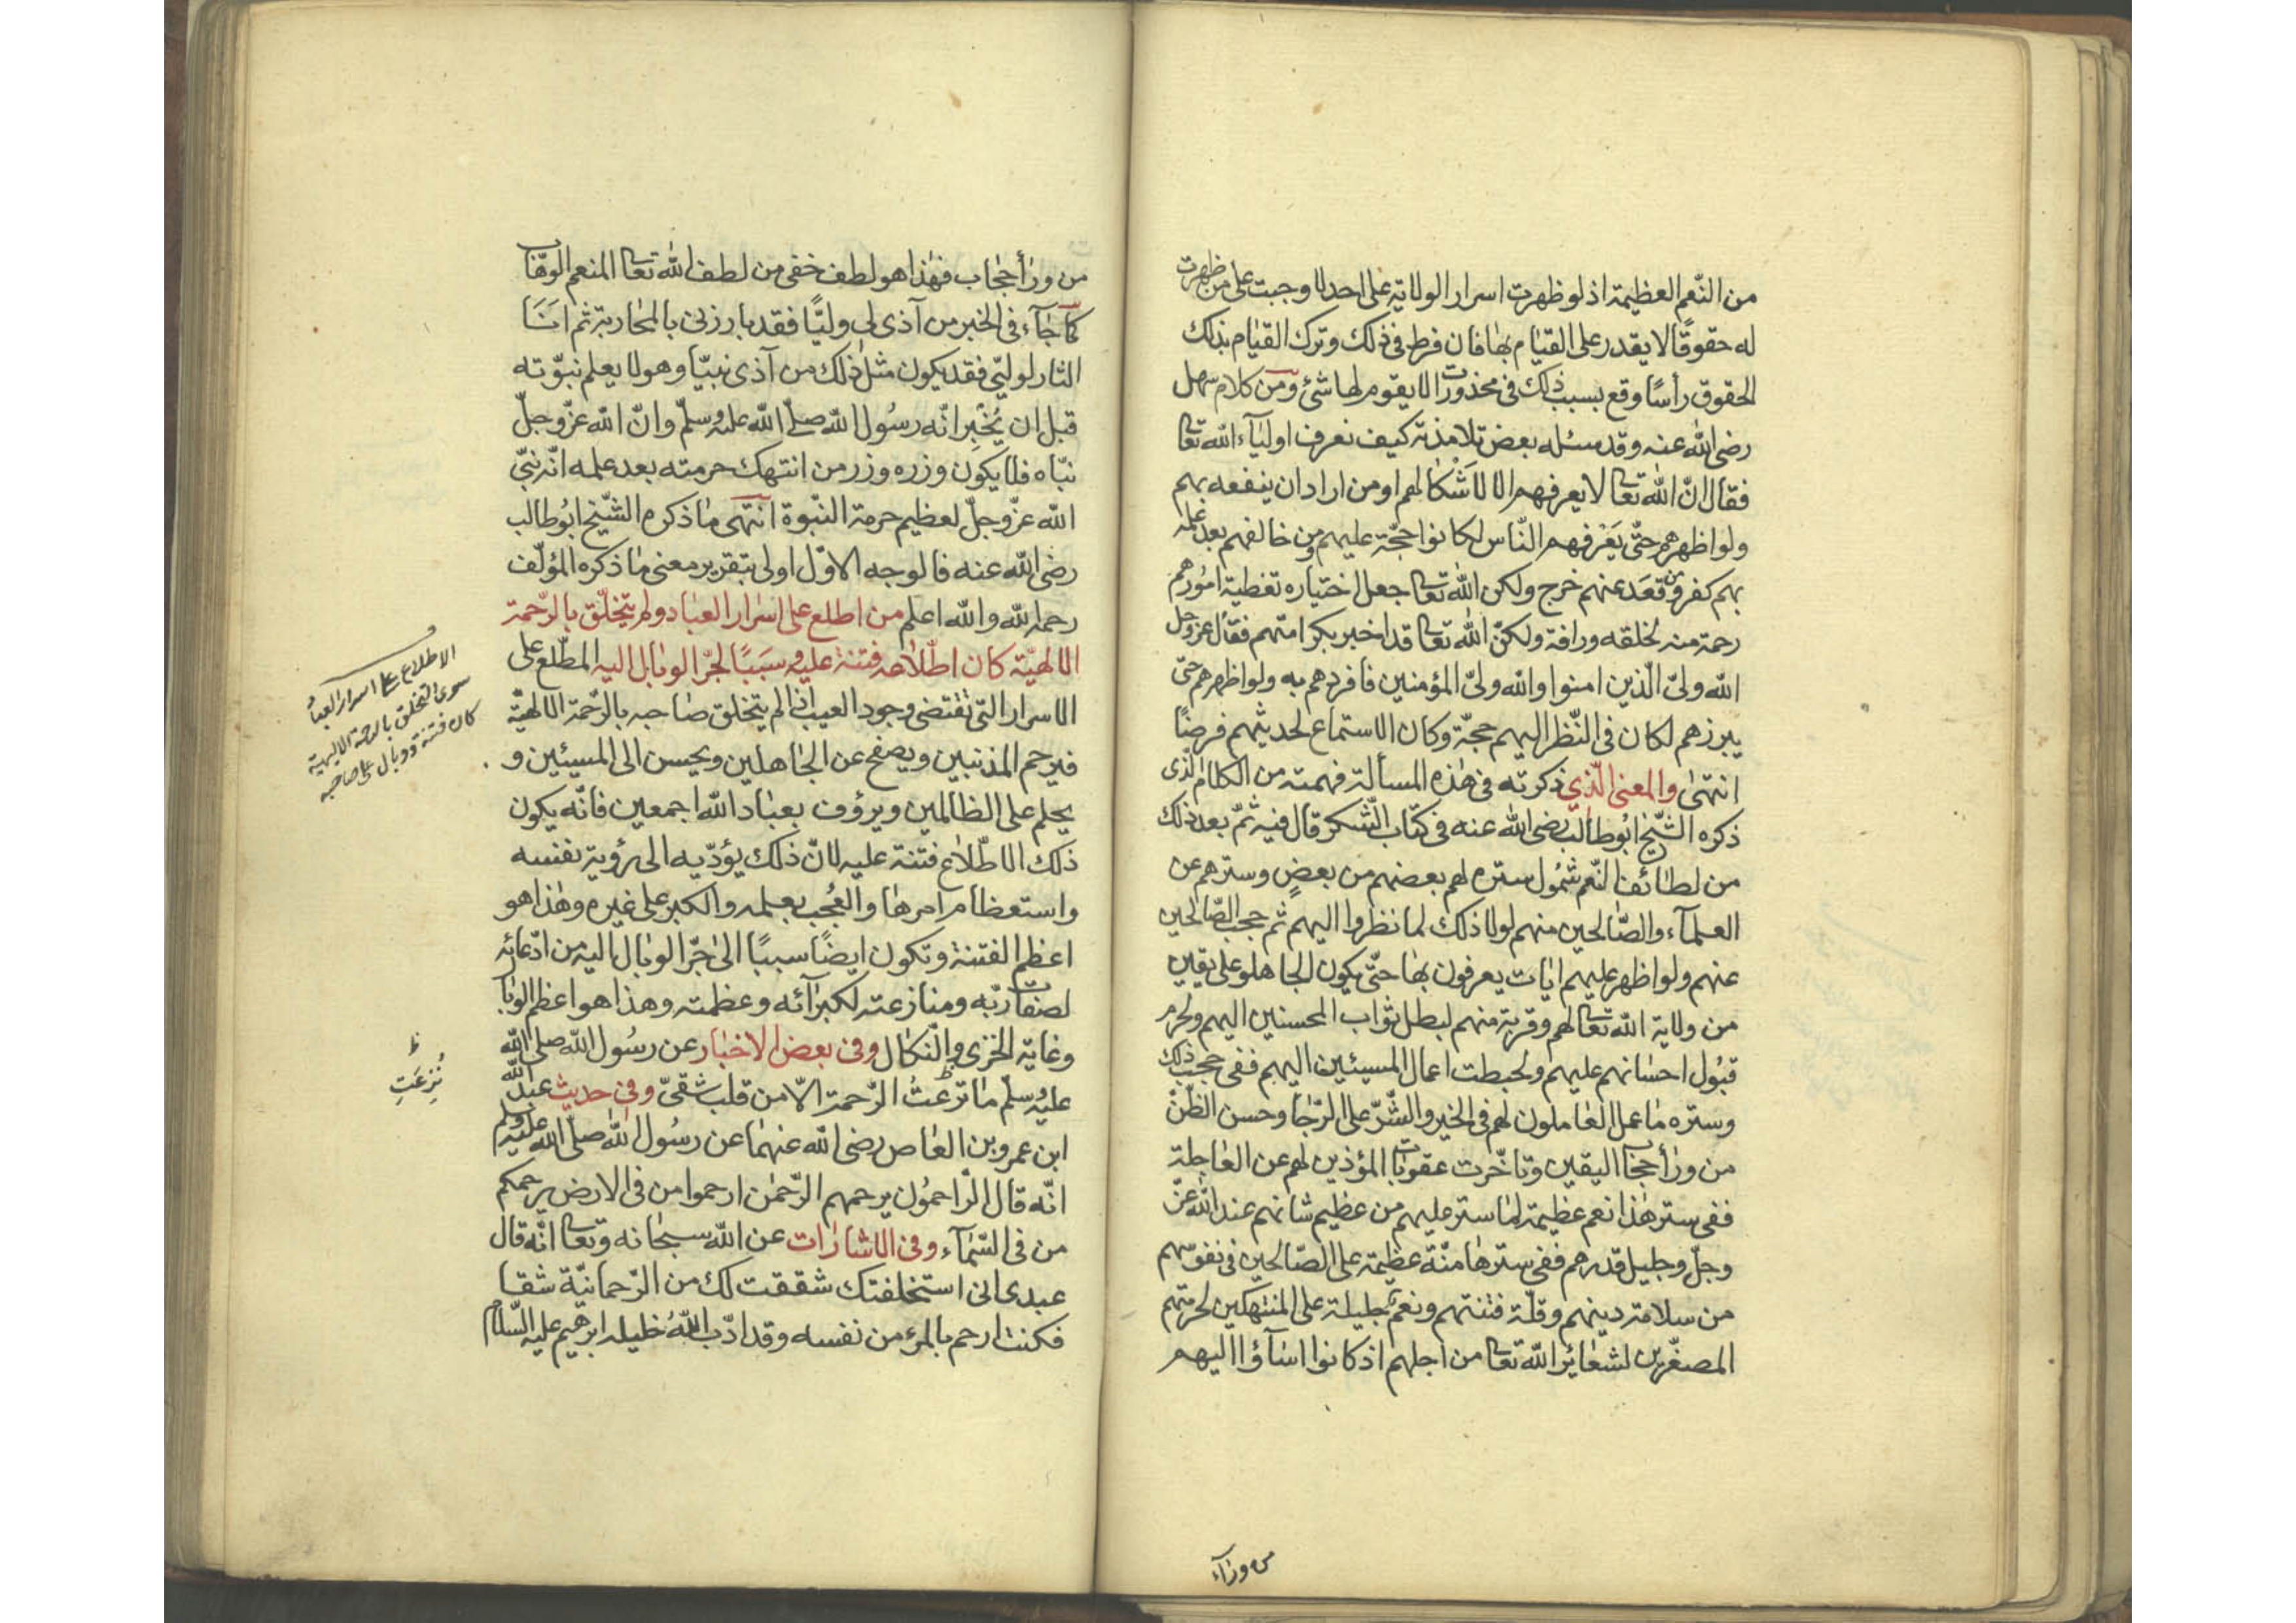 من النّعم العظيمة اذ لو ظهرت اسرار الولاية على احد لاوجبت على من ظهرت
له حقوقًا لا يقدر على القيام بها فان فرط فى ذلك وترك القيام بذلك
الحقوق رأسًا وقع بسبب ذلك فى محذورات لا يقوم لها شئ ومن كلام سهل
رضى الله عنه وقد سئله بعض تلامذته كيف نعرف اوليآء الله تعا
فقال انّ الله تعا لا يعرفهم الا لاَشْكالهم او من اراد ان ينفعه بهم
ولو اظهرهم حتّى يَعْرفهم النّاس لكانوا حجّة عليهم ومن خالفهم بعد علمه
بهم كفر ومن قعَد عنهم خرج ولكن الله تعا جعل اختياره تغطية امورهم
رحمة منه لخلقه ورافة ولكنّ الله تعا قد اخبر بكرامتهم فقال عزّ وجل
الله ولىّ الّذين امنوا والله ولىّ المؤمنين فافردهم به ولو اظهرهم حتّى
يبرزهم لكان فى النّظر اليهم حجّة وكان الاستماع لحديثهم فرضًا
انتهى والمعنى الّذى ذكرته فى هٰذه المسألة فهمته من الكلام الّذى
ذكره الشّيخ ابُوطالب رضى الله عنه فى كتاب الشّكر قال فيه ثمّ بعد ذلك
من لطائف النّعم شمُول ستره لهم بعضهم من بعضٍ وسترهم عن
العلمآء والصّالحين منهم لولا ذلك لما نظروا اليهم ثم حجب الصّالحين
عنهم ولو اظهر عليهم ايات يعرفون بها حتّى يكون الجاهلو على يقين
من ولاية الله تعا لهم وقربة منهم لبطل ثواب المحسنين اليهم ولحرم
قبُول احسانهم عليهم ولحبطت اعمال المسيئين اليهم ففى حجب ذلك
وستره ما عمل العاملون لهم فى الخير والشّرّ على الرّجا وحسن الظّنّ
من ورأ حجاب اليقين وتاخّرت عقوبات المؤذين لهم عن العاجلة
ففى ستر هٰذا نعم عظيمة لما ستر عليهم من عظيم شانهم عند الله عزّ
وجلّ وجليل قدرهم ففى سترها منّة عظيمة على الصّالحين فى نفوسهم
من سلامة دينهم وقلّة فتنتهم ونعم جليلة على المنتهكين لحرمتهم
المصغّرين لشعائر الله تعا من اجلهم اذ كانوا اسآؤا اليهم
من ورآء
من ورأ حجاب فهٰذا هو لطف خفى من لطف الله تعا المنعم الوهّاب
كما جآء فى الخبر من آذى لى وليًّا فقد بارزنى بالمحاربة ثم انا
الثار لوليّى فقد يكون مثل ذلك من آذى نبيّا وهو لا يعلم نبوّته
قبل ان يُخْبِر انّه رسُول الله صلّے الله عليه وسلّم وانّ الله عزّ وجلّ
نبّاه فلا يكون وزره وزر من انتهك حرمته بعد علمه انّه نبىّ
الله عزّ وجلّ لعظيم حرمة النّبوة انتهى ما ذكره الشّيخ ابُوطالب
رضى الله عنه فالوجه الاوّل اولى بتقرير معنى ما ذكره المؤلّف
رحمه الله والله اعلم من اطلع على اسرار العباد ولم يتخلّق بالرّحمة
الالهيّة كان اطّلاعه فتنة عليه وسَبَبًا لجرّ الوبال اليه المطّلع على
الاسرار الّتى تقتضى وجود العيب اذا لم يتخلق صاحبه بالرّحمة الالهيّة
فيرحم المذنبين ويصفح عن الجاهلين ويحسن الى المسيئين و
يحلم على الظالمين ويرؤف بعباد الله اجمعين فانّه يكون
ذلك الاطّلاع فتنة عليه لانّ ذلك يؤدّيه الى رؤية نفسه
واستعظام امرها والعُجب بعلمه والكبر على غيره وهٰذا هو
اعظم الفتنة وتكون ايضًا سببًا الى جرّ الوبال اليه من ادّعائه
لصفات ربّه ومنازعته لكبرآئه وعظمته وهذا هو اعظم الوبا
وغاية الخزى والنّكال وفى بعض الاخبار عن رسُول الله صلى الله
عليه وسلّم ما نزعتُ الرّحمة الّا من قلب شقىّ وفى حديث عبد الله
ابن عمرو بن العاص رضى الله عنهما عن رسُول الله صلّى الله عليه وسلم
انّه قال الرّاحمُون يرحمهم الرّحمٰن ارحموا من فى الارض يرحمكم
من فى السّمآء وفى الاشارات عن الله سبحانه وتعا انّه قال
عبدى انى استخلفتك شققت لك من الرّحمانيّة شقا
فكنت ارحم بالمرء من نفسه وقد ادّب اللهُ خليله ابرهيم عليه السّلام
الاطلاع على اسرار العباد
سوى التخلق بالرحمة الالهية
كان فتنة ووبال على صاحبه
ظ
نُزِعَتِ